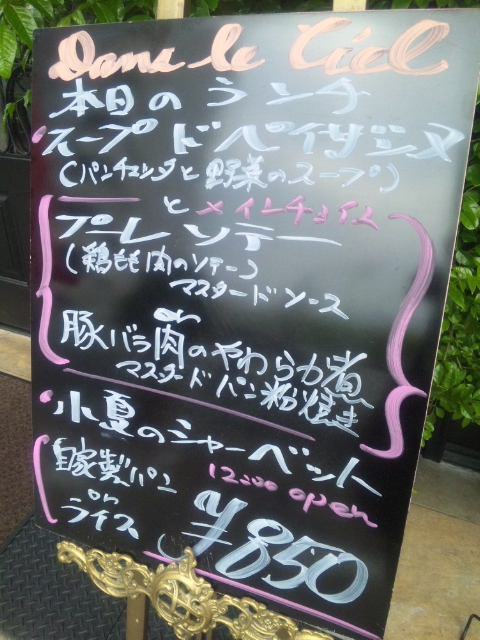 Dans le Ciel
本日のランチ
スープ ド ペイザンヌ
(パンチェッタと野菜のスープ)
と メインチョイス
プーレ ソテー
(鶏もも肉のソテー)
マスタードソース
or
豚バラ肉のやわらか煮
マスタードパン粉焼き
小夏のシャーベット
自家製パン
or
ライス
12:00 open
¥850